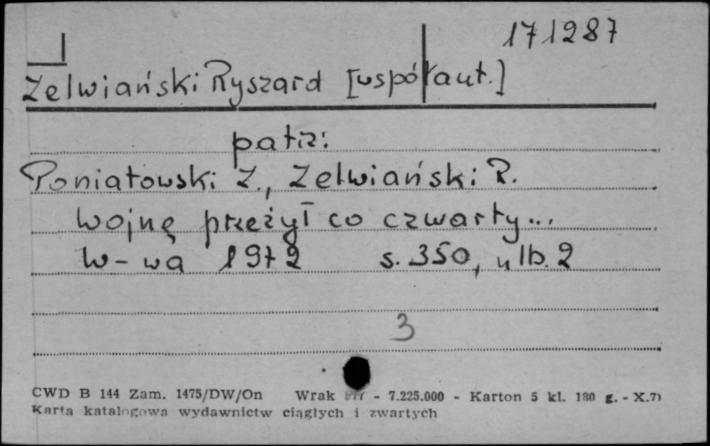 171287
Zelwiański Ryszard [współaut.]
patrz:
Poniatowski Z., Zelwiański R.
Wojnę przeżył co czwarty...
W-wa 1972 s. 350, nlb. 2
3
CWD B 144 Zam. 1475/DW/On Wrak - 7.225.000 - Karton 5 kl. 180 g. - X.71
Karta katalogowa wydawnictw ciągłych i zwartych